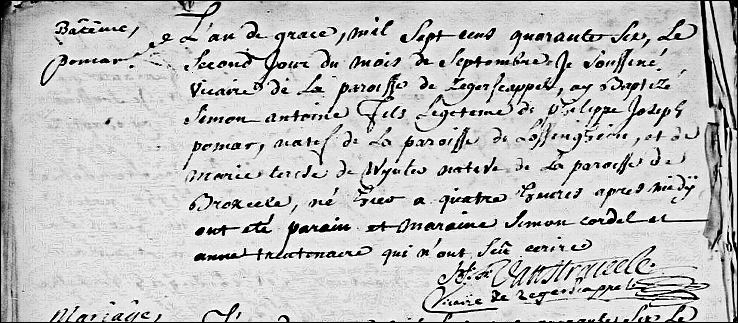 Batême,
pomar
L'an de grace, mil sept cens quarante six, le
second jour du mois de septembre je soussiné
vicaire de la paroisse de Zegerscappel, ay Baptizé
simon antoine fils legeteme de philippe Joseph
pomar, natif de la paroisse de, et de
marie terese de Wynter native de la paroisse de
Broxcele, né hier a quatre heures apres midy
ont été parain et maraine simon cordel et
anne trentenaire qui n'ont seu ecrire
Vanstraceele
vicaire de Zegerscappel
Mariage,
quarante six le